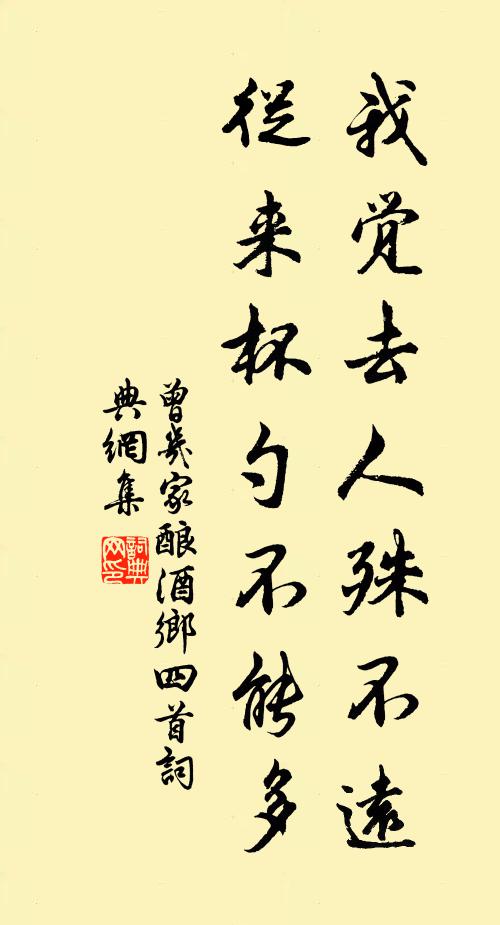 我觉去人殊不遠
從来杯勺不能多
曾幾家酿酒鄉四首詞
典網集
詞典
网印